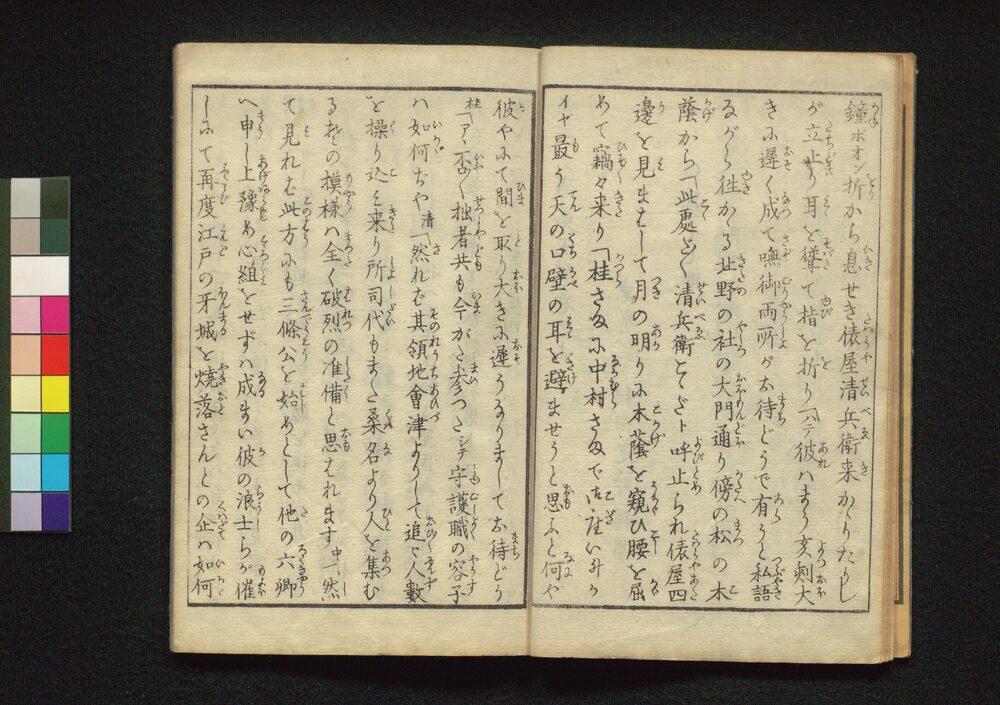 鐘ボオン折から息せき俵屋清兵衛来かゝりたりし
が立止り耳を聳て指を折り「ハテ彼ハまう亥刻大
きに遅く成て嘸御両所がお待どうで有うと私語
ながら往かゝる北野の社の大門通り傍の松の木
蔭から「此處だ〱清兵衛どのト呼止られ俵屋四
邊を見まはして月の明りに木蔭を窺ひ腰を屈
めて竊々来り「桂さまに中村さまで御座い升か
イヤ最う天の口壁の耳を避ませうと思ふと何や
彼やにて間を取り大きに遲うなりましてお待どう
桂「アヽ否〱拙者共も今がた参つたシテ守護職の容子
ハ如何ぢや 清「然れば其領地會津よりして追々人數
を操り込ミ来り所司代もまた桑名より人を集む
る其の摸様ハ全く破烈の准備と思はれます 中「然
て見れば此方にも三條公を始めとして他の六卿
へ申し上豫め心組をせずハ成まい彼の浪士らが催
しにて再度江戸の牙城を焼落さんとの企ハ如何